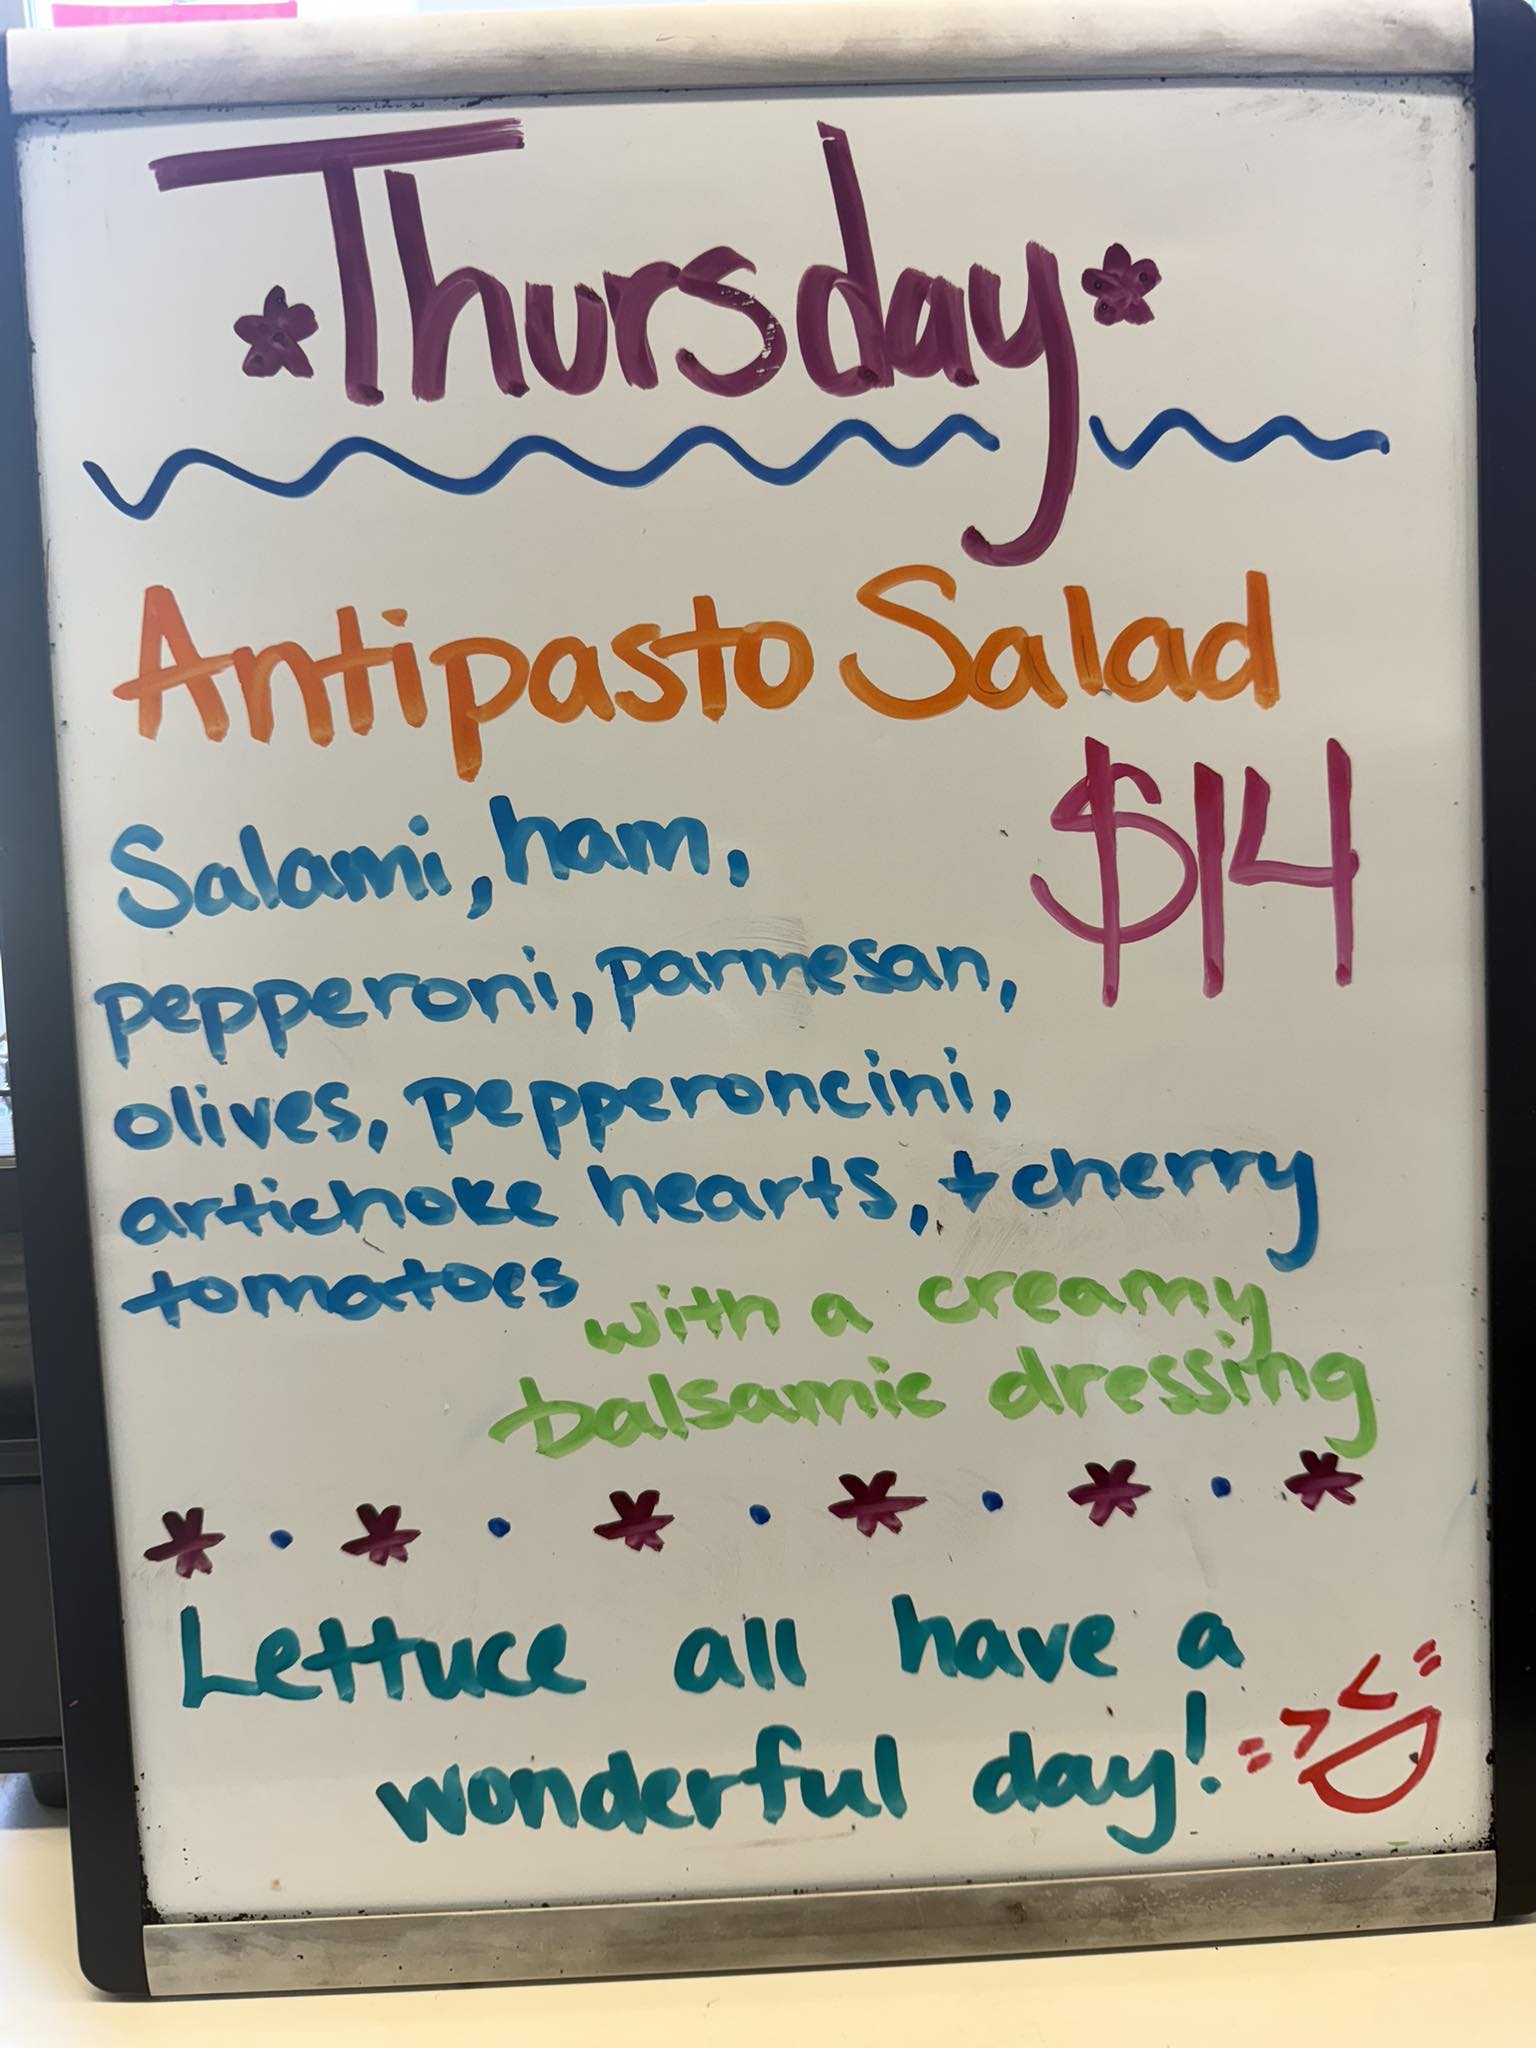 Thursday
Antipasto Salad
$14
Salami, ham,
pepperoni, parmesan,
olives, pepperoncini,
artichoke hearts, + cherry
tomatoes
with a creamy
balsamic dressing
Lettuce all have a
wonderful day!